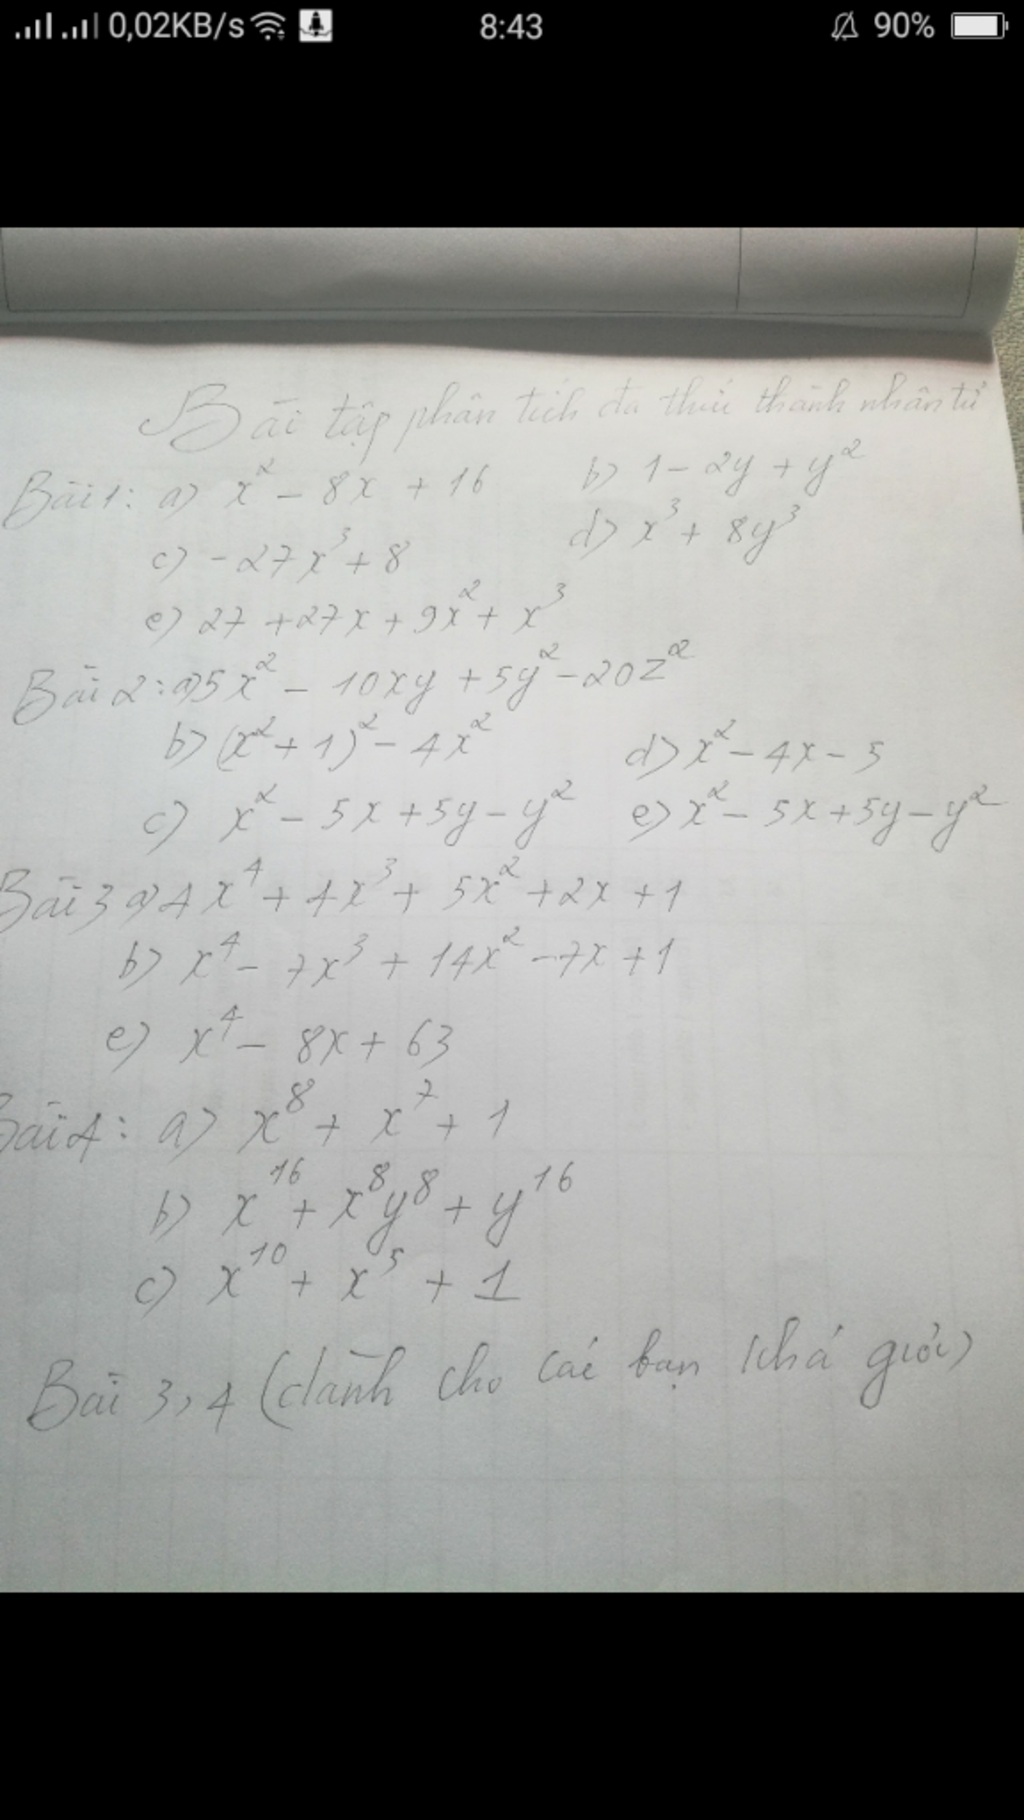 0,02KB/s 8:43 90%
Bài tập phân tích đa thức thành nhân tử
Bài 1: a) x² - 8x + 16 b) 1 - 2y + y²
c) -27x³ + 8 d) x³ + 8y³
e) 27 + 27x + 9x² + x³
Bài 2: a) 5x² - 10xy + 5y² - 20z²
b) (x² + 1)² - 4x² d) x² - 4x - 5
c) x² - 5x + 5y - y² e) x² - 5x + 5y - y²
Bài 3 a) 4x⁴ + 4x³ + 5x² + 2x + 1
b) x⁴ - 7x³ + 14x² - 7x + 1
e) x⁴ - 8x + 63
Bài 4: a) x⁸ + x⁷ + 1
b) x¹⁶ + x⁸y⁸ + y¹⁶
c) x¹⁰ + x⁵ + 1
Bài 3, 4 (dành cho các bạn khá giỏi)